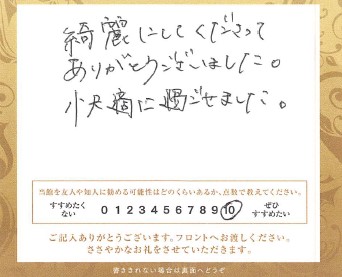 綺麗にしてくださって
ありがとうございました。
小犬適に過ごせました。
当館を友人や知人に勧める可能性はどのくらいあるか、点数で教えてください。
すすめたく
ない
0 1 2 3 4 5 6 7 8 9 10
ぜひ
すすめたい
ご記入ありがとうございます。フロントへお渡しください。
ささやかなお礼をさせていただきます。
書ききれない場合は裏面へどうぞ